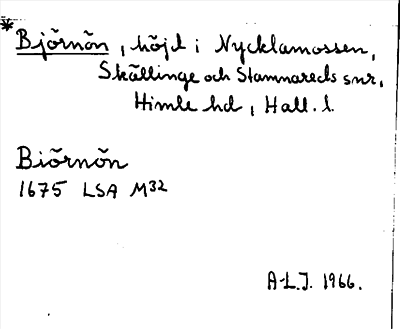 *Björnön, höjd i Nycklamossen,
Skällinge och Stamnareds snr,
Himle hd, Hall. l.
Biörnön
1675 LSA M32
A-L.J. 1966.